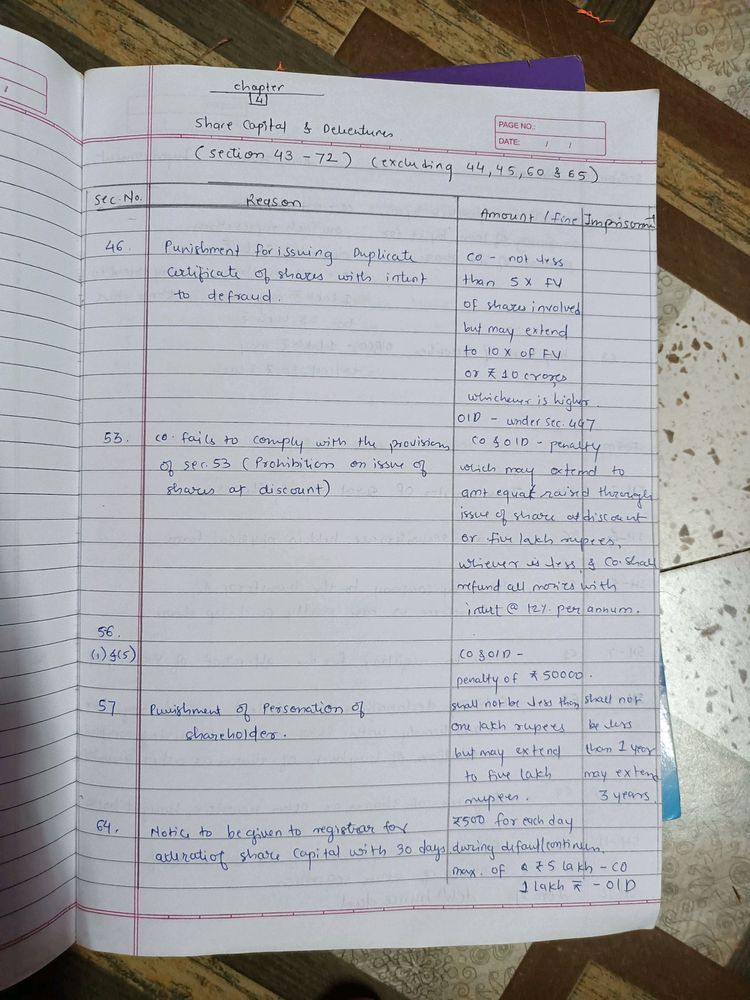 chapter
4
Share Capital & Debentures
PAGE NO.:
DATE: / /
(section 43 - 72) (excluding 44, 45, 50 & 65)
Sec. No. Reason Amount / fine Imprisoment
46. Punishment for issuing Duplicate
certificate of shares with intent
to defraud.
CO - not less
than 5 X FV
of shares involved
but may extend
to 10 X of FV
or ₹ 10 crores,
whichever is higher.
OID - under sec. 447
53. co. fails to comply with the provision
of sec. 53 (Prohibition on issue of
shares at discount)
CO & OID - penalty
which may extend to
amt equal raised through
issue of share at discount
or five lakh rupees,
whiever is less, & Co. shall
refund all monies with
@ 12% per annum.
56.
(1) & (5)
CO & OID -
penalty of ₹ 50000.
57 Punishment of Personation of
shareholder.
shall not be less than
one lakh rupees
but may extend
to five lakh
rupees.
shall not
be less
than 1 year
may extend
3 years.
64. Notice to be given to registrar for
share capital with 30 days
₹500 for each day
during default continue.
max. of ₹ 5 lakh - CO
1 lakh ₹ - OID